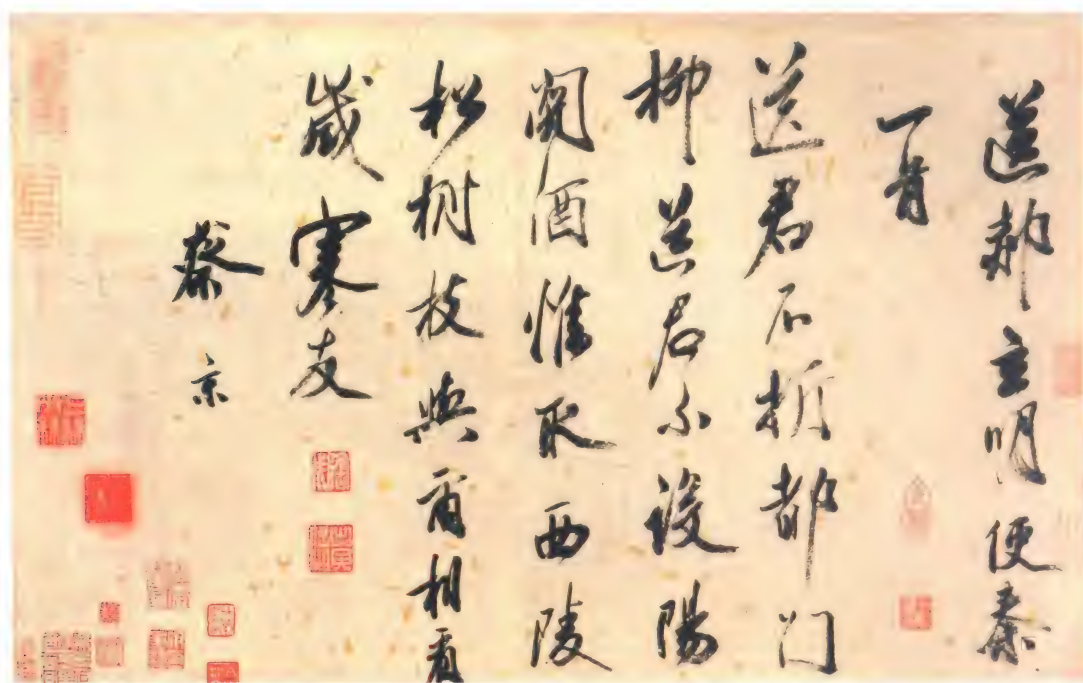 送郝玄明使秦
一首
送君不折都门
柳送君不設陽
関酒惟取西陵
松樹枝與爾相看
歲寒友
蔡京